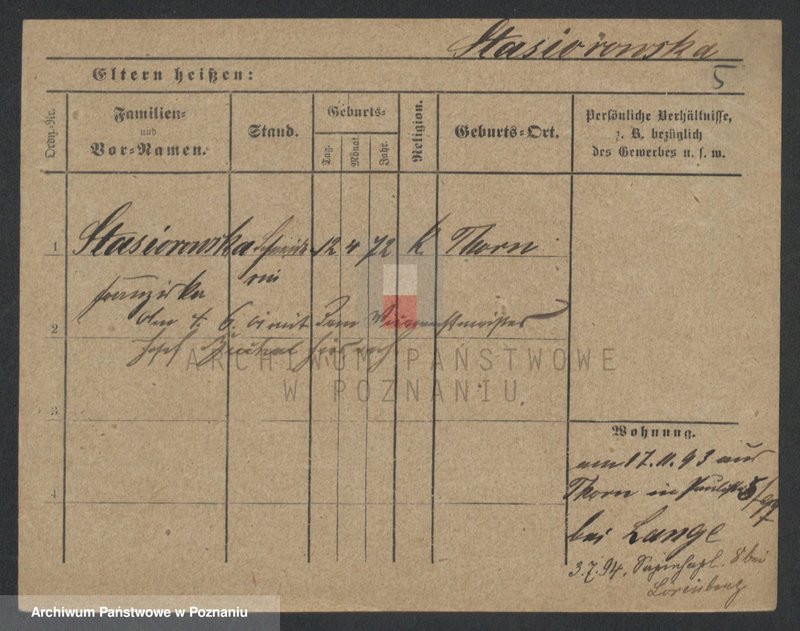 Stasiorowska
5
Eltern heißen:
Ordn.-Nr.
Familien-
und
Vor-Namen.
Stand.
Geburts-
Tag.
Monat.
Jahr.
Religion.
Geburts-Ort.
Persönliche Verhältnisse,
z. B. bezüglich
des Gewerbes u. s. w.
1 Stasiorowska 12 4 72 K. Thorn
Franziska
2
den 4. 6. mit dem
Josef
3
4
ARCHIWUM PAŃSTWOWE
W POZNANIU
Wohnung.
am 17.11.93 aus
Thorn in
bei Lange
3.7.94. 8 bei
Archiwum Państwowe w Poznaniu